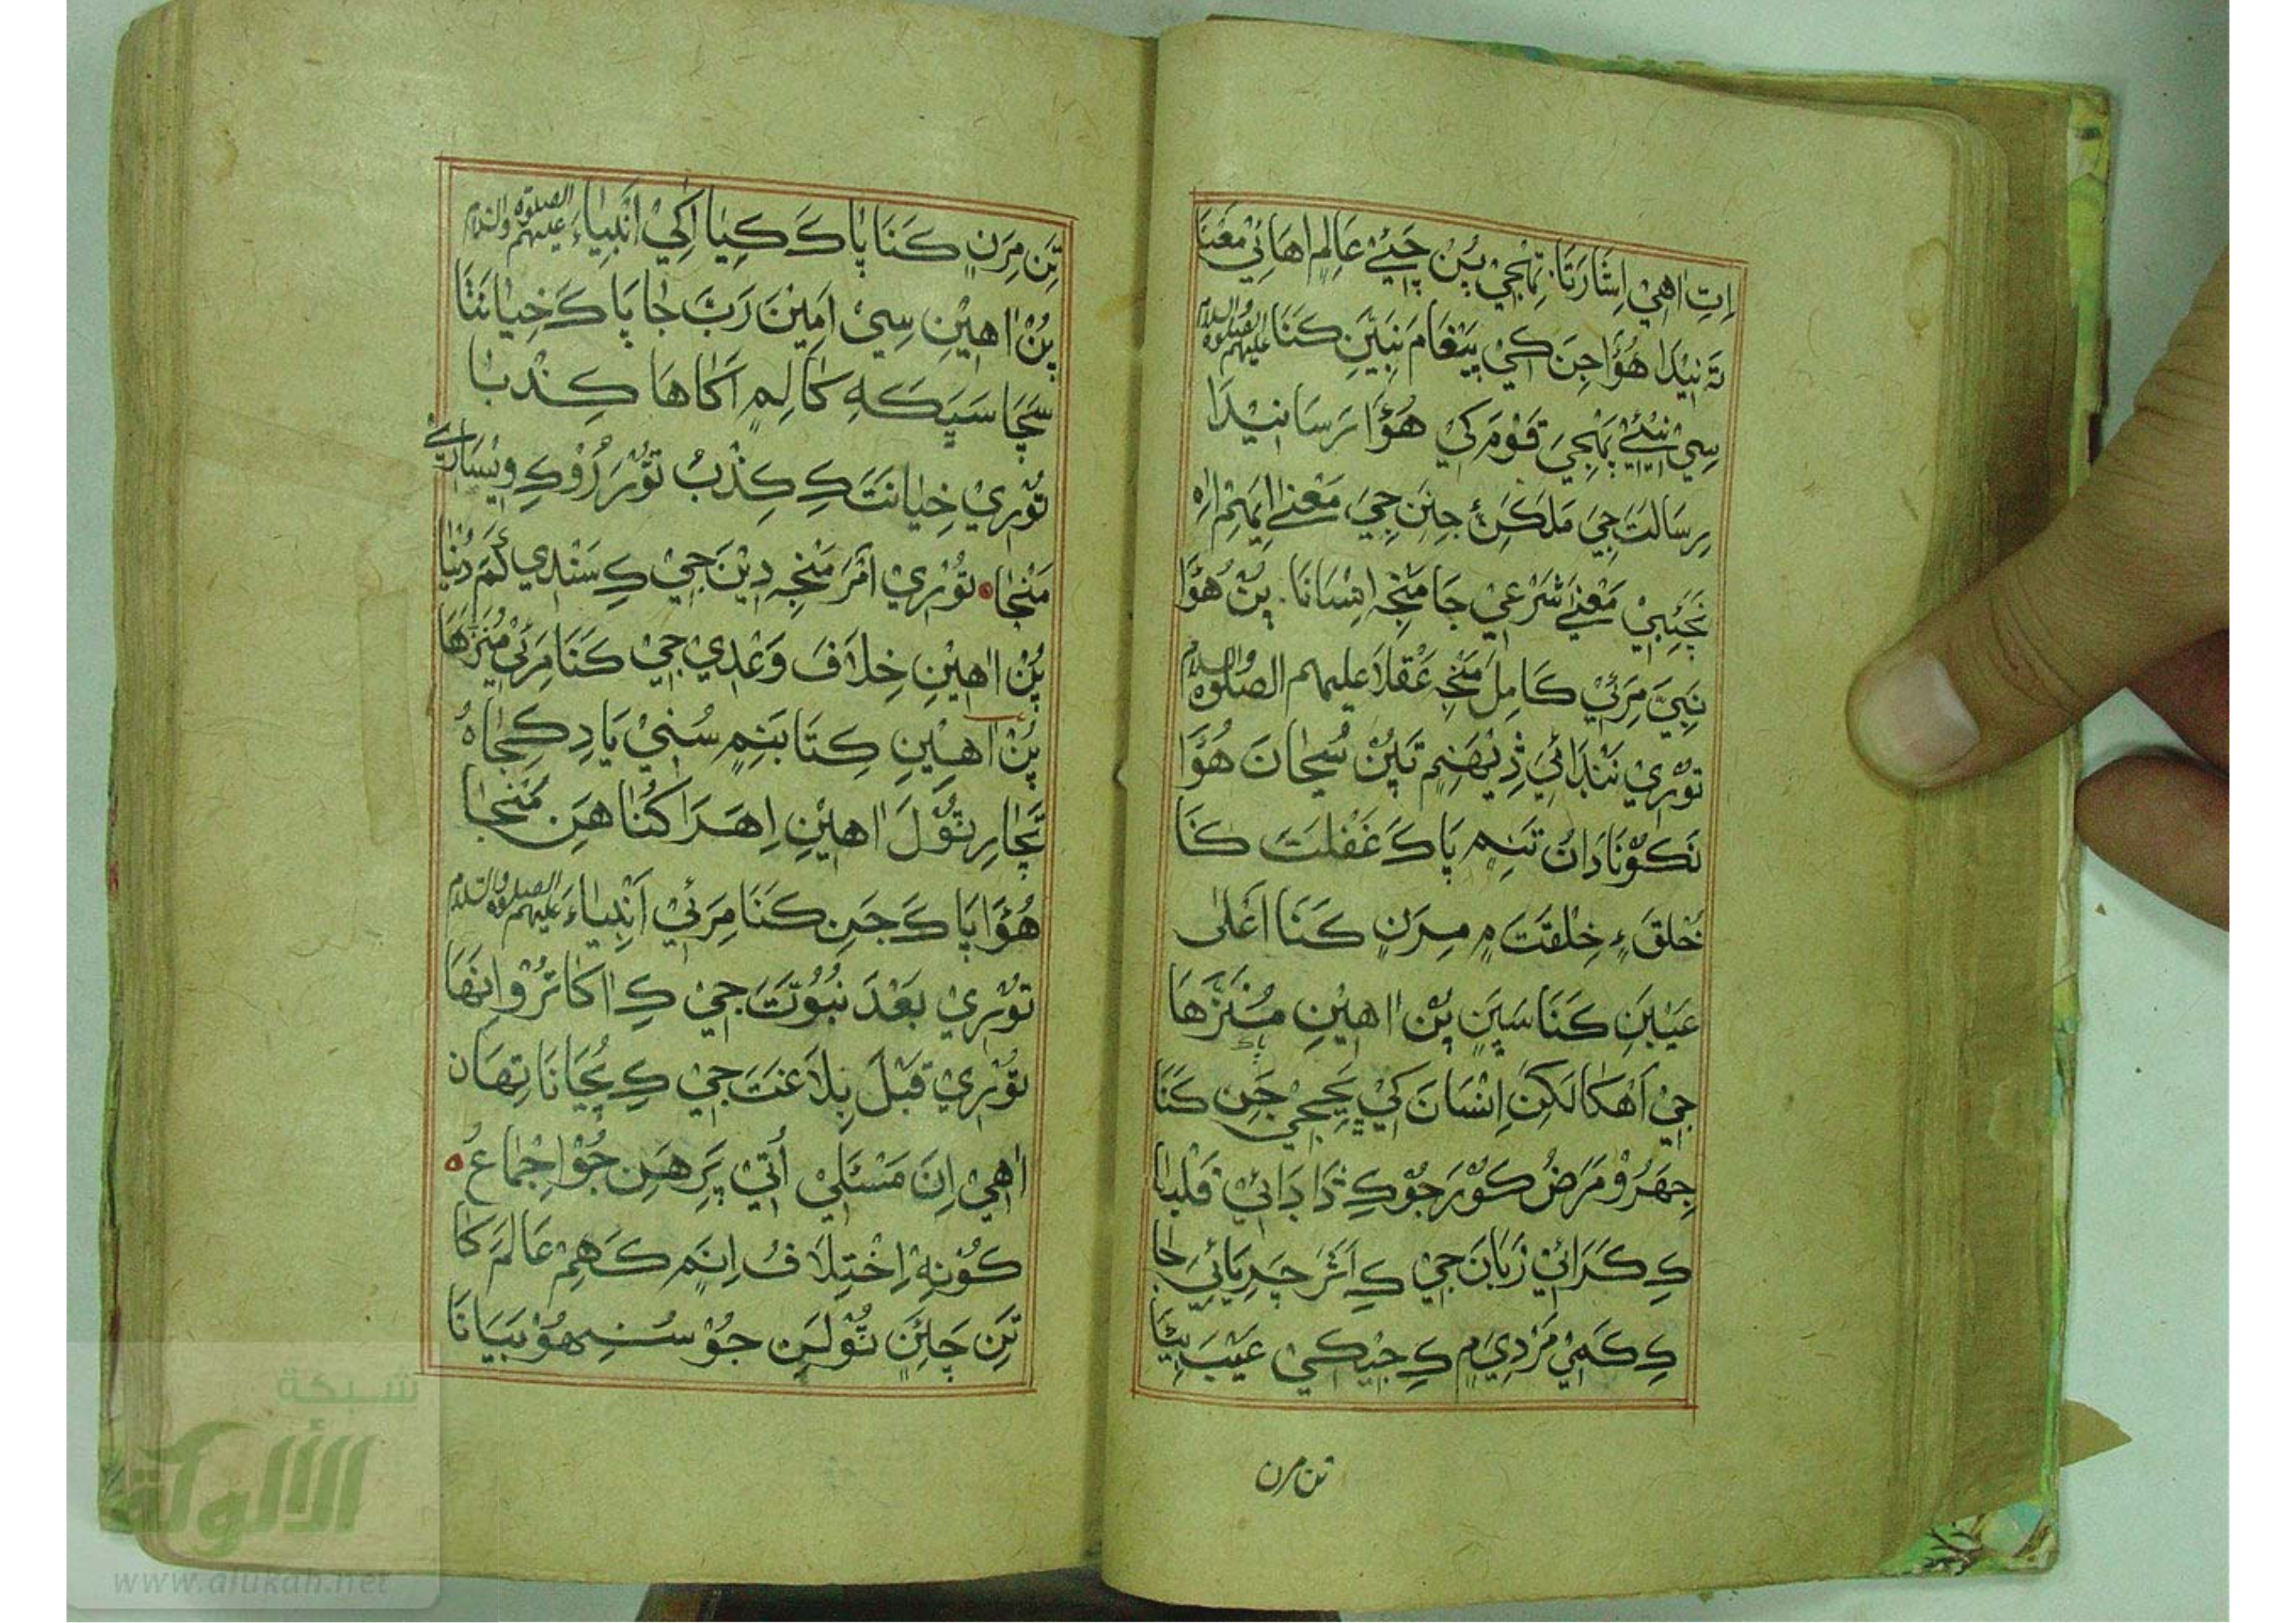 اِتِ اهي اِشَارَتَا. تِهْجِيْ پُڻ چَيَئِے عَالِمِ اهَائِي مَعْنَا
تَه نِيْدَا هُؤَا جِنَ کي پَيْغَام نَبِيَنِ کَنَا عليهم الصلوة والسلام
سِيْ نِيْئِے پَنْهِجيَ قَوْمَ کِي هُؤَا رَسَا نِيْدَا
رِسَالَتَ جِيَ مَلَکَنِ جِنَنِ جِيَ مَعْنٰے
مَعْنٰے شَرْعِيْ جَا مَنْجِهِ اِنْسَانَا. پُڻ هُؤَا
نَبِيَ مِرَئِيْ کَامِلَ مَنْجِهِ عَقْلَا عليهم الصلوة والسلام
توْڙِي نَنْدَائِي ڏِيْنْهَنِمِ تَپُڻ سُڃَانَ هُؤَا
نَکو نَادَانُ تَنِمِ پَاکَ غَفْلَتَ کَنَا
خُلْقَ خِلْقَتَ مِ مِرَنِ کَنَا اَعْلٰی
عَيْبَنِ کَنَا سَيَنِ پُڻ اهِيْنِ مُنَزَّهَا
جِي اَهْکَا لٰکِن اِنْسَانَ کي جَنِ کَنَا
جِهَڙُوْ مَرَضُ کوْڙَ جوْ کِ دَا دَائِيْ قَلْبَا
کِ کَرَائِيْ زَبَانَ جِيْ کِ اَثَرَ چَرِيَائِيَ جَا
کِ کَمِيْ مَرْدِيَ مِ کِ جِيْکِيْ عَيْبَ ٻِيَا
تن مرن
تِنِ مِرَنِ کَنَا پَاکَ کِيَا اکي اَنْبِيَاءَ عليهم الصلوة والسلام
پُڻ اهِيْنِ سِيْ اَمِيْنَ رَبَّ جَا پَاکَ خِيَانَتَا
سَچَا سَڀَکَهِ کَالِمِ اَکَاهَا کِذْبَا
توْڙِي خِيَانَتَ کِ کِذْبُ توْڙَ رُؤکِ وِسَارِے
مَنْجَا ه توْڙِيْ اَمْرَ مَنْجِهِ دِيْنَ جِيْ کِ سَنْدِي کَمَ دُنْيَا
پُڻ اهِيْنِ خِلَافَ وَعْدِي جِيْ کَنَا مِرَئِيْ مُنَزَّهَا
پُڻ اهِيْنِ کِتَابَنِمِ سُنِيْ يَادِ کِجَاهُ
تَجَارِ توْلَ اهِيْنِ اِهَڙَا کُنَا هَنِ مَنْجَا
هُؤَا پَاکَ جَنِ کَنَا مِرَئِيْ اَنْبِيَاءَ عليهم الصلوة والسلام
توْڙِيْ بَعْدَ نَبُوَّتَ جِيْ کِ اکَاتَرُ وانهَا
توْڙِيْ قَبْلَ بِلَاغتَ جِيْ کِ پُڃَانَا تِهَان
اهِيْ اِنَ مَسْئَلِيْ اُتِيْ پَرِ هَنِ جُوْ اِجْمَاعُ ه
کوْنهِ اِخْتِلَافُ اِنَمِ کَهِمْ عَالَمَ کَا
تِنِ چَئِنِ قوْلَنِ جوْ سُنِهِ هُوْ بَيَانَا
شبكة
الألوكة
www.alukah.net